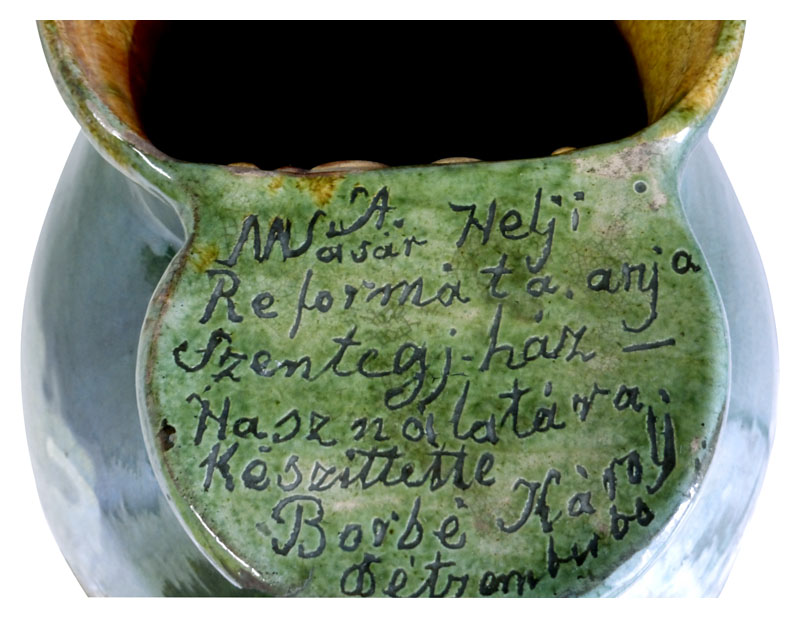 A.
MVásár Helji
Reformáta. anja
Szentegj-ház –
Használatára.
Készíttette
Borbé Károlj